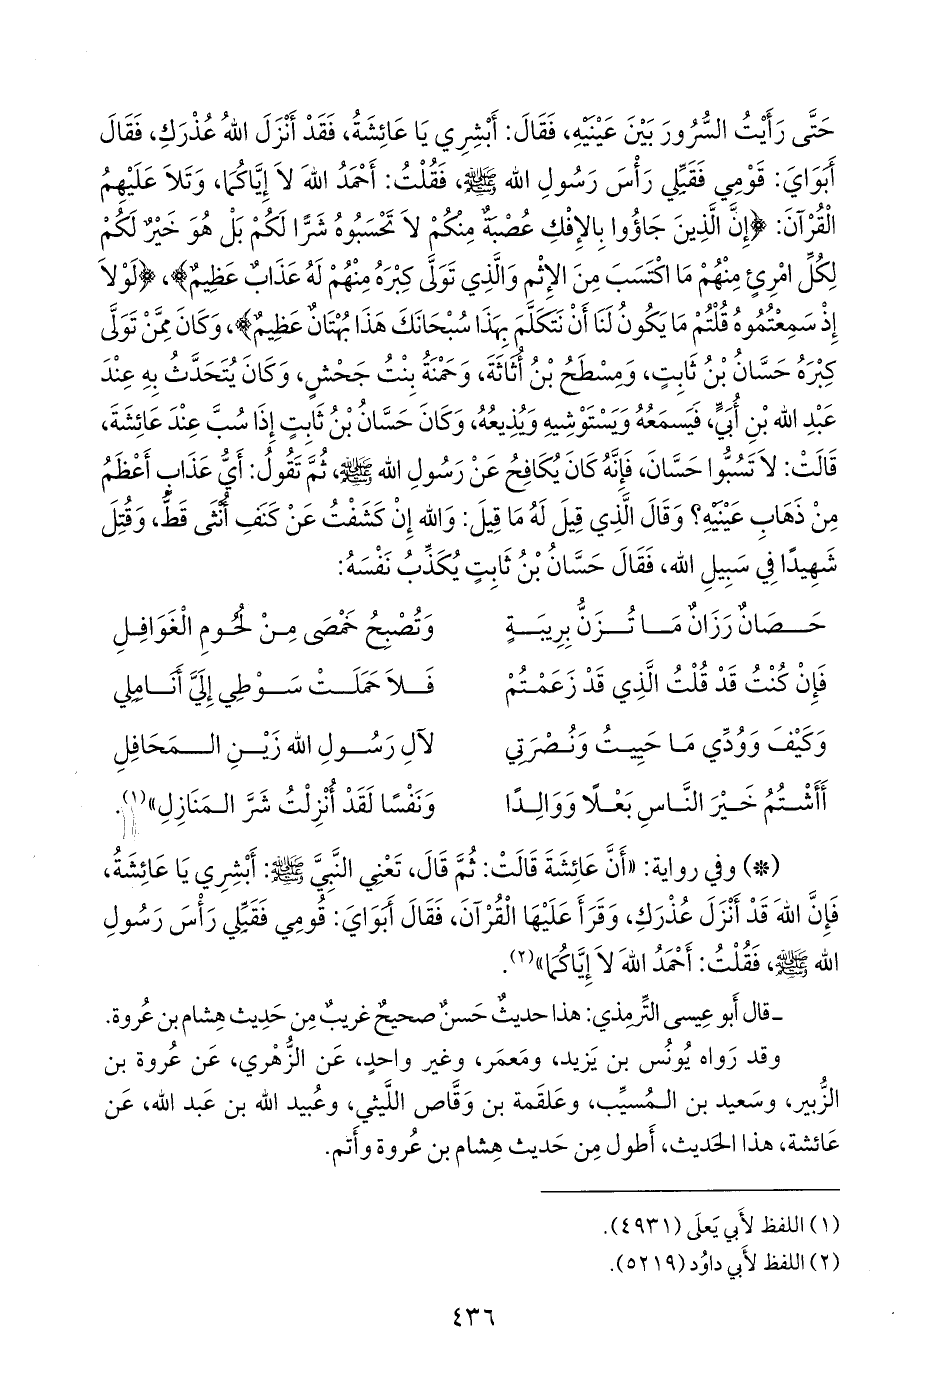 حَتَّى رَأَيْتُ السُّرُورَ بَيْنَ عَيْنَيْهِ، فَقَالَ: أَبْشِرِي يَا عَائِشَةُ، فَقَدْ أَنْزَلَ اللهُ عُذْرَكِ، فَقَالَ
أَبَوَايَ: قَوْمِي فَقَبِّلِي رَأْسَ رَسُولِ الله ﷺ، فَقُلْتُ: أَحْمَدُ اللهَ لاَ إِيَّاكُمَا، وَتَلاَ عَلَيْهِمُ
الْقُرْآنَ: ﴿إِنَّ الَّذِينَ جَاؤُوا بِالإِفْكِ عُصْبَةٌ مِنْكُمْ لاَ تَحْسَبُوهُ شَرًّا لَكُمْ بَلْ هُوَ خَيْرٌ لَكُمْ
لِكُلِّ امْرِئٍ مِنْهُمْ مَا اكْتَسَبَ مِنَ الإِثْمِ وَالَّذِي تَوَلَّى كِبْرَهُ مِنْهُمْ لَهُ عَذَابٌ عَظِيمٌ﴾، ﴿لَوْلاَ
إِذْ سَمِعْتُمُوهُ قُلْتُمْ مَا يَكُونُ لَنَا أَنْ نَتَكَلَّمَ بِهَذَا سُبْحَانَكَ هَذَا بُهْتَانٌ عَظِيمٌ﴾، وَكَانَ مِمَّنْ تَوَلَّى
كِبْرَهُ حَسَّانُ بْنُ ثَابِتٍ، وَمِسْطَحُ بْنُ أُثَاثَةَ، وَحَمْنَةُ بِنْتُ جَحْشٍ، وَكَانَ يُتَحَدَّثُ بِهِ عِنْدَ
عَبْدِ الله بْنِ أُبَيٍّ، فَيَسْمَعُهُ وَيَسْتَوْشِيهِ وَيُذِيعُهُ، وَكَانَ حَسَّانُ بْنُ ثَابِتٍ إِذَا سُبَّ عِنْدَ عَائِشَةَ،
قَالَتْ: لاَ تَسُبُّوا حَسَّانَ، فَإِنَّهُ كَانَ يُكَافِحُ عَنْ رَسُولِ الله ﷺ، ثُمَّ تَقُولُ: أَيُّ عَذَابٍ أَعْظَمُ
مِنْ ذَهَابِ عَيْنَيْهِ؟ وَقَالَ الَّذِي قِيلَ لَهُ مَا قِيلَ: وَالله إِنْ كَشَفْتُ عَنْ كَنَفِ أُنْثَى قَطُّ، وَقُتِلَ
شَهِيدًا فِي سَبِيلِ الله، فَقَالَ حَسَّانُ بْنُ ثَابِتٍ يُكَذِّبُ نَفْسَهُ:
حَصَانٌ رَزَانٌ مَا تُزَنُّ بِرِيبَةٍ وَتُصْبِحُ خَمْصَى مِنْ لُحُومِ الْغَوَافِلِ
فَإِنْ كُنْتُ قَدْ قُلْتُ الَّذِي قَدْ زَعَمْتُمْ فَلاَ حَمَلَتْ سَوْطِي إِلَيَّ أَنَامِلِي
وَكَيْفَ وَوُدِّي مَا حَيِيتُ وَنُصْرَتِي لآلِ رَسُولِ الله زَيْنِ الـمَحَافِلِ
أَأَشْتُمُ خَيْرَ النَّاسِ بَعْلًا وَوَالِدًا وَنَفْسًا لَقَدْ أُنْزِلْتُ شَرَّ الـمَنَازِلِ»(١).
(*) وفي رواية: «أَنَّ عَائِشَةَ قَالَتْ: ثُمَّ قَالَ، تَعْنِي النَّبِيَّ ﷺ: أَبْشِرِي يَا عَائِشَةُ،
فَإِنَّ اللهَ قَدْ أَنْزَلَ عُذْرَكِ، وَقَرَأَ عَلَيْهَا الْقُرْآنَ، فَقَالَ أَبَوَايَ: قُومِي فَقَبِّلِي رَأْسَ رَسُولِ
الله ﷺ، فَقُلْتُ: أَحْمَدُ اللهَ لاَ إِيَّاكُمَا»(٢).
ـ قال أَبو عِيسى التِّرمِذي: هذا حديثٌ حَسنٌ صحيحٌ غريبٌ مِن حَديث هِشام بن عُروة.
وقد رَواه يُونُس بن يَزيد، ومَعمَر، وغير واحدٍ، عَن الزُّهْري، عَن عُروة بن
الزُّبير، وسَعيد بن الـمُسيِّب، وعَلقمة بن وَقَّاص اللَّيثي، وعُبيد الله بن عَبد الله، عَن
عَائشة، هذا الحَديث، أَطول مِن حَديث هِشام بن عُروة وأَتم.
(١) اللفظ لأَبي يَعلَى (٤٩٣١).
(٢) اللفظ لأَبي داوُد (٥٢١٩).
٤٣٦